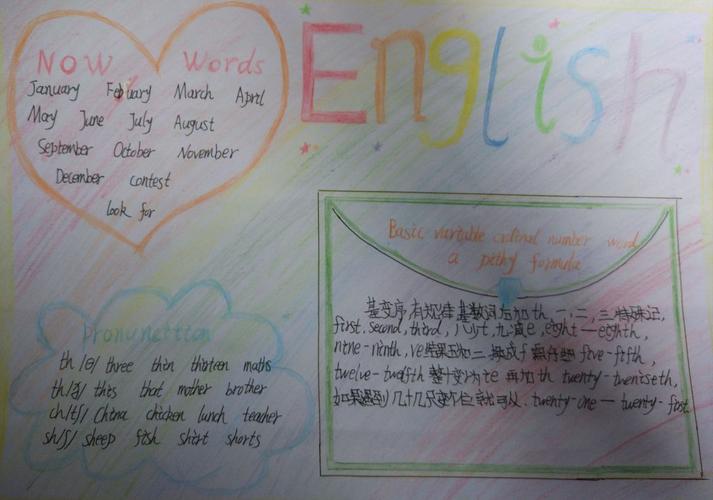 English
Now Words
January February March April
May June July August
September October November
December contest
look for
Basic variable ordinal number word
a pithy formula
基变序,有规律,基数词后加th,一,二,三特殊记,
first, second, third, 八少t,九减e, eight—eighth,
nine-ninth, ve f five-fifth,
twelve-twelfth 整十变y为ie 再加th twenty-twentieth,
如果遇到几十几,只变个位就可以. twenty-one— twenty-first.
th /θ/ three thin thirteen maths
th/ð/ this that mother brother
ch/tʃ/ China chicken lunch teacher
sh/ʃ/ sheep fish shirt shorts